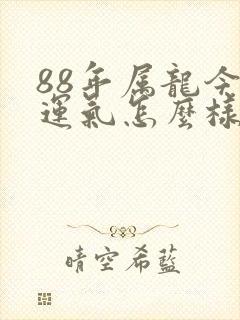 88年属龍今
運氣怎麼樣
晴空希藍